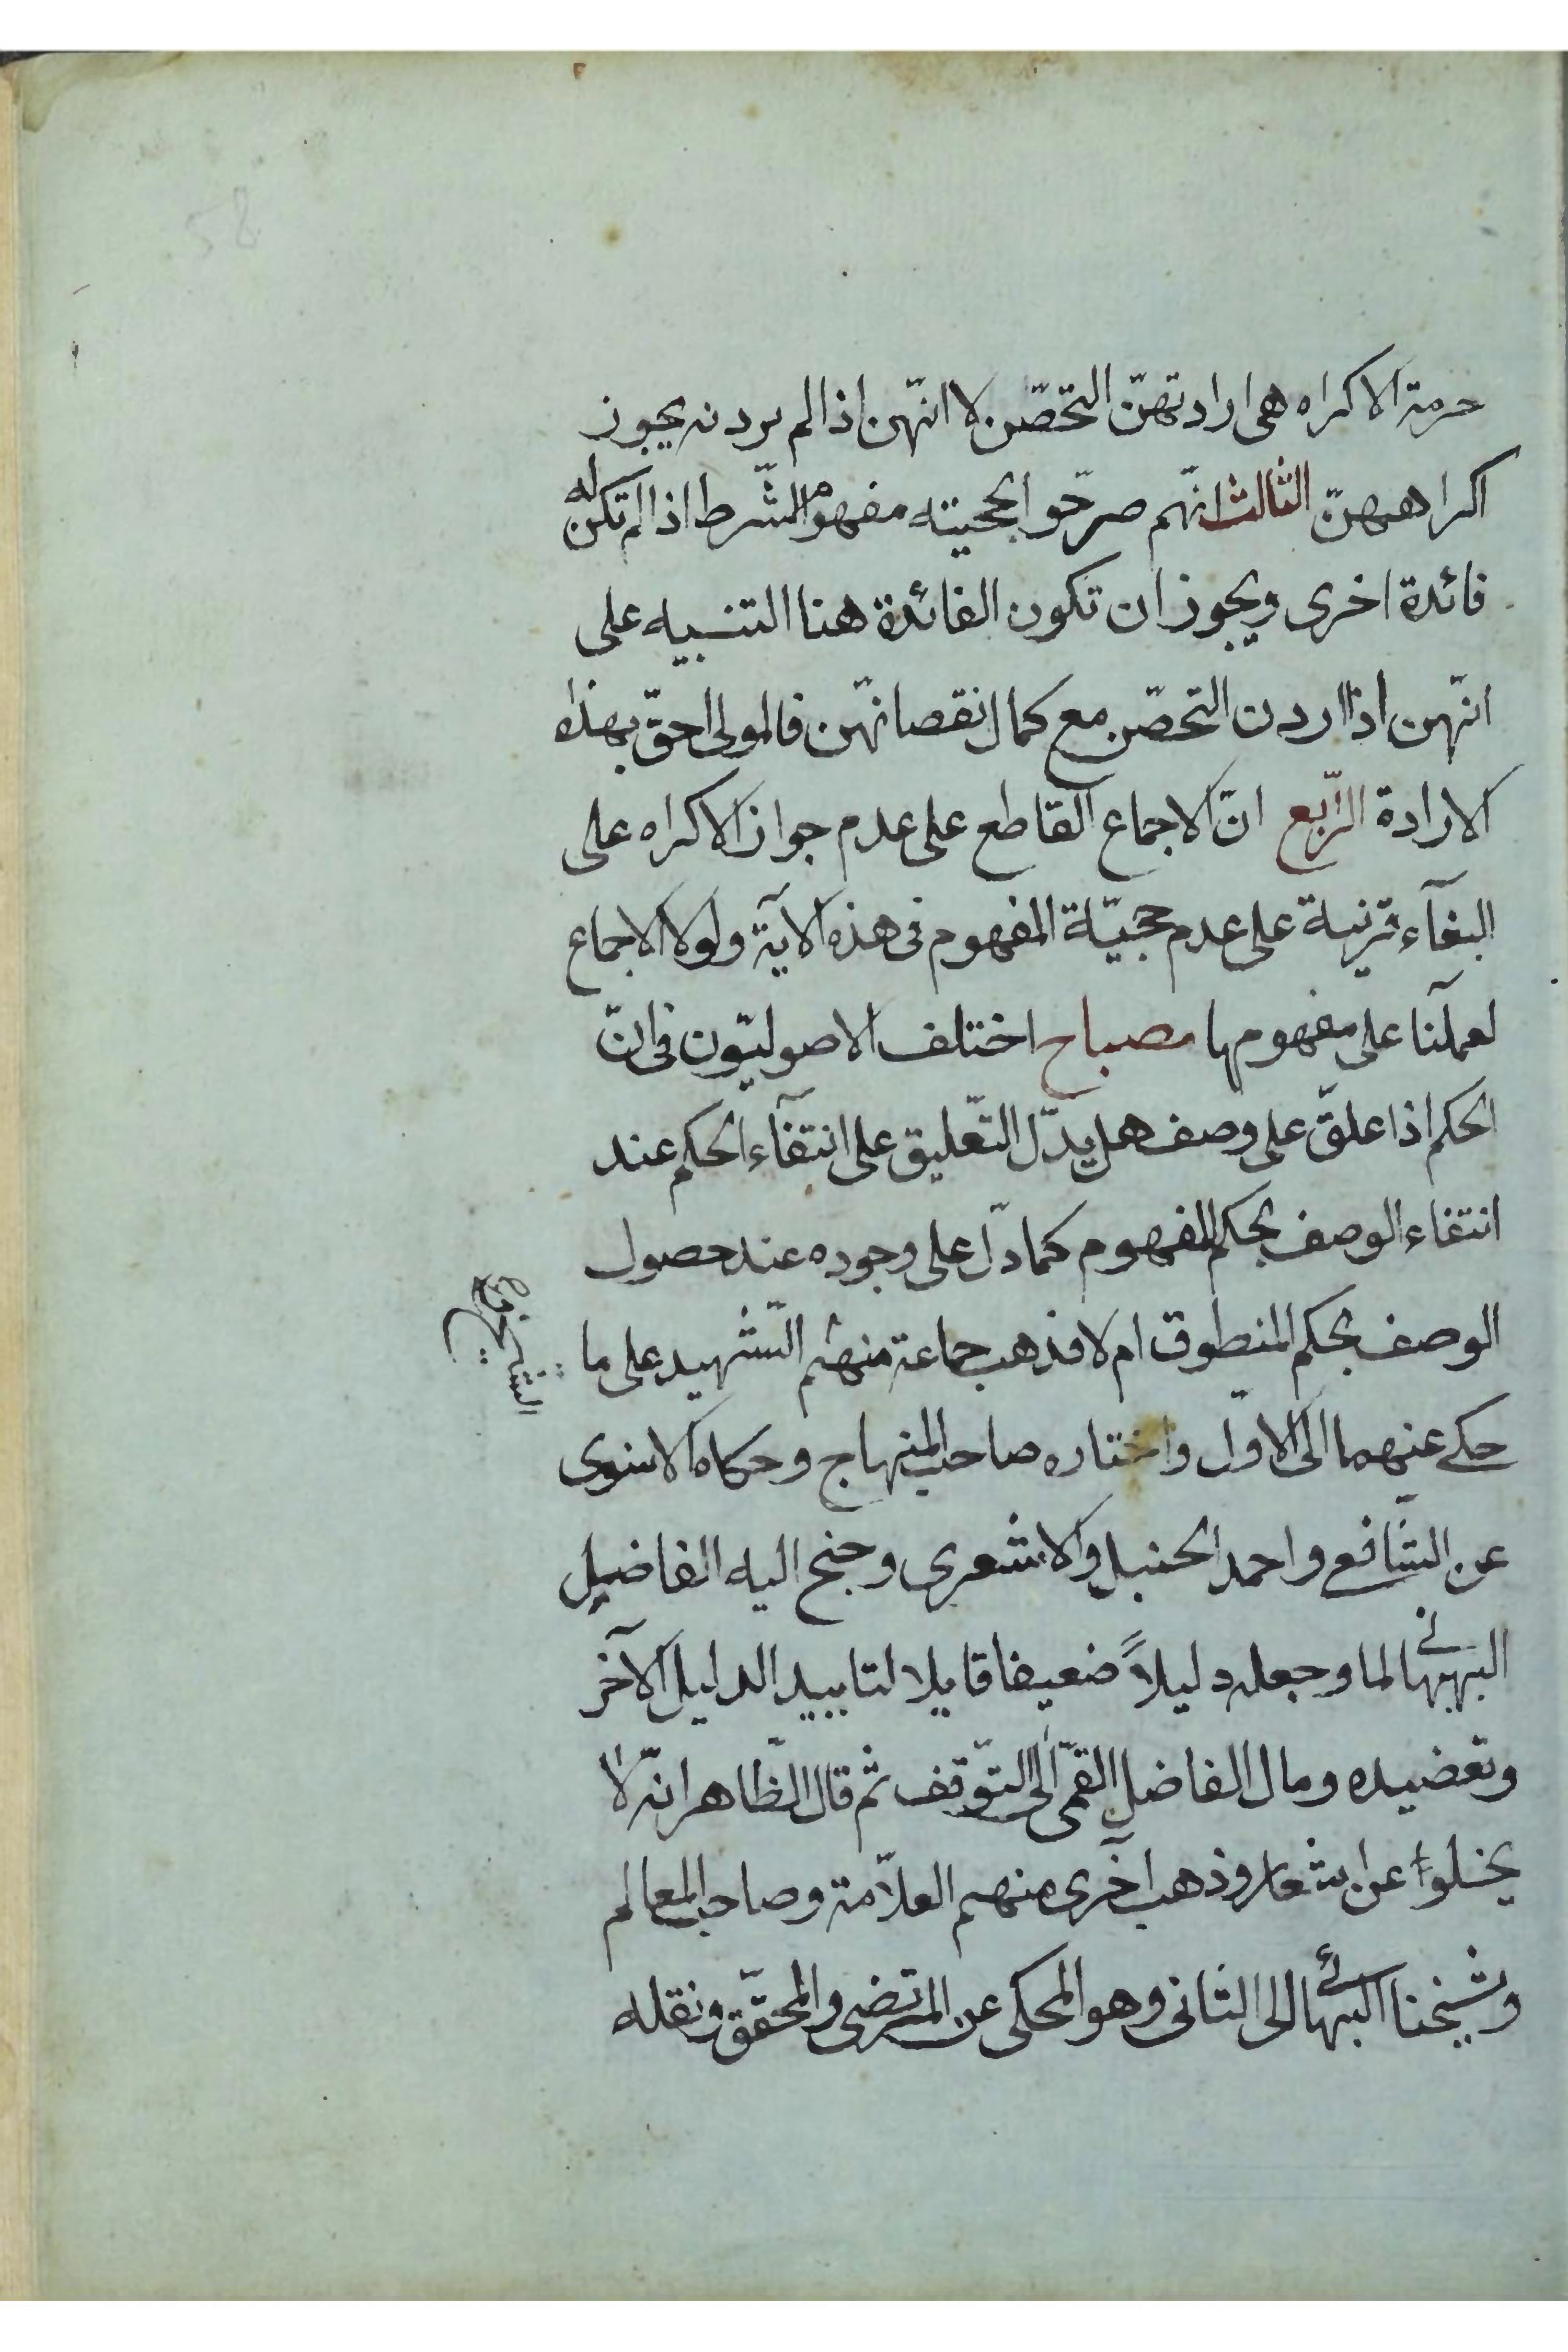 58
حرمة الاكراه هى ارادتهنّ التحصّن لا انّهن اذا لم يردنه يجوز
اكراههنّ الثالث انّهم صرّحوا بحجيته مفهوم الشّرط اذا لم تكن له
فائدة اخرى ويجوز ان تكون الفائدة هنا التنبيه على
انّهن اذا اردن التحصّن مع كمال نقصانهّن فالمولى احقّ بهذه
الارادة الرّابع انّ الاجماع القاطع على عدم جواز الاكراه على
البغآء قرينة على عدم حجيّة المفهوم فى هذه الآية ولولا الاجماع
لعملنا على مفهومها مصباح اختلف الاصوليّون فى انّ
الحكم اذا علّق على وصف هل يدّل التّعليق على انتفآء الحكم عند
انتفاء الوصف بحكم المفهوم كما دلّ على وجوده عند حصول
الوصف بحكم المنطوق ام لا فذهب جماعة منهم الشّهيد على ما
حكى عنهما الى الاوّل واختاره صاحب المنهاج وحكاه الاسنوى
عن الشّافعى واحمد الحنبل والاشعرى وجنح اليه الفاضل
البهبهانى لما وجعله دليلاً ضعيفا قابلا لتاييد الدليل الآخر
وتعضيده ومال الفاضل القمّى الى التوّقف ثم قال الظّاهر انّه لا
يخلوا عن اشعار وذهب اخرى منهم العلاّمة وصاحب المعالم
وشيخنا البهائى الى الثانى وهو المحكى عن المرتضى والمحقّق ونقله
الشيخ و